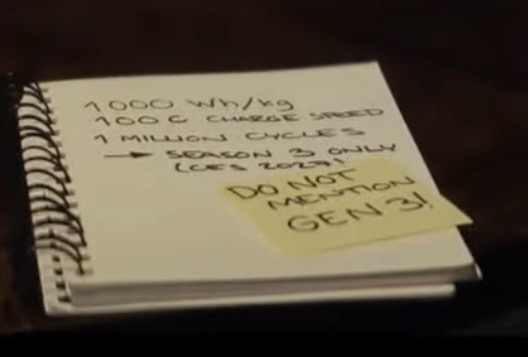 1000 Wh/kg
100 C CHARGE SPEED
1 MILLION CYCLES
→ SEASON 3 ONLY
(CES 2027)
DO NOT
MENTION
GEN 3!